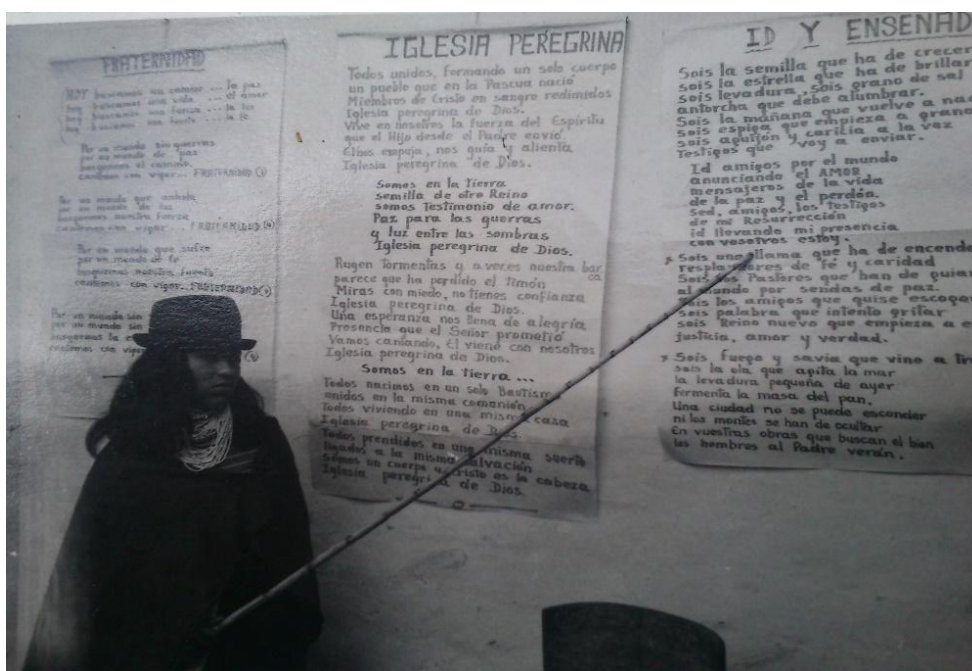 FRATERNIDAD
HOY buscamos un camino ... la paz
hoy buscamos una vida ... el amor
hoy buscamos una fuerza ... la luz
hoy buscamos una fuente ... la fe
Por un mundo sin guerras
por un mundo de paz
busquemos el camino
cantemos con vigor... FRATERNIDAD
Por un mundo que anhela
por un mundo de luz
busquemos nuestra fuerza
cantemos con vigor... FRATERNIDAD
Por un mundo que sufre
por un mundo de fe
busquemos nuestra fuente
cantemos con vigor... FRATERNIDAD
Por un mundo sin
por un mundo sin
busquemos la
cantemos con vigor
IGLESIA PEREGRINA
Todos unidos, formando un solo cuerpo
un pueblo que en la Pascua nació
Miembros de Cristo en sangre redimidos
Iglesia peregrina de Dios.
Vive en nosotros la fuerza del Espíritu
que el Hijo desde el Padre envió
El nos empuja, nos guía y alienta
Iglesia peregrina de Dios.
Somos en la tierra
semilla de otro Reino
somos Testimonio de amor.
Paz para las guerras
y luz entre las sombras
Iglesia peregrina de Dios.
Rugen Tormentas y a veces nuestra bar
ca
parece que ha perdido el timón
Miras con miedo, no tienes confianza
Iglesia peregrina de Dios.
Una esperanza nos llena de alegría
Presencia que el Señor prometió
Vamos cantando, El viene con nosotros
Iglesia peregrina de Dios.
Somos en la tierra ...
Todos nacimos en un solo Bautism
unidos en la misma comunión
Todos viviendo en una misma casa
Iglesia peregrina de Dios.
Todos prendidos en una misma suerte
ligados a la misma salvación
Somos un cuerpo y Cristo es la cabeza
Iglesia peregrina de Dios.
ID Y ENSEÑAD
Sois la semilla que ha de crecer
sois la estrella que ha de brillar
Sois levadura, sois grano de sal
antorcha que debe alumbrar.
Sois la mañana que vuelve a nac
sois espiga que empieza a grana
sois aguijón y caricia a la vez
Testigos que voy a enviar.
Id amigos por el mundo
anunciando el AMOR
mensajeros de la vida
de la paz y el perdón.
Sed, amigos, los testigos
de mi Resurrección
id llevando mi presencia
con vosotros estoy.
Sois una llama que ha de encende
resplandores de fé y caridad
Sois los Pastores que han de guiar
al mundo por sendas de paz.
Sois los amigos que quise escoger
sois palabra que intento gritar
sois Reino nuevo que empieza a e
justicia, amor y verdad.
Sois fuego y savia que vino a tr
sois la ola que agita la mar
la levadura pequeña de ayer
fermenta la masa del pan.
Una ciudad no se puede esconder
ni los montes se han de ocultar
En vuestras obras que buscan el bien
los hombres al Padre verán.